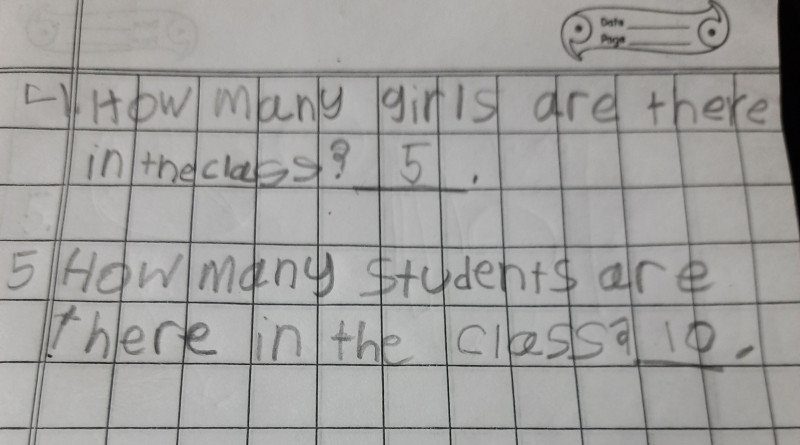 Date
Page
4) How many girls are there
in the class? 5.
5 How many students are
there in the class? 10.